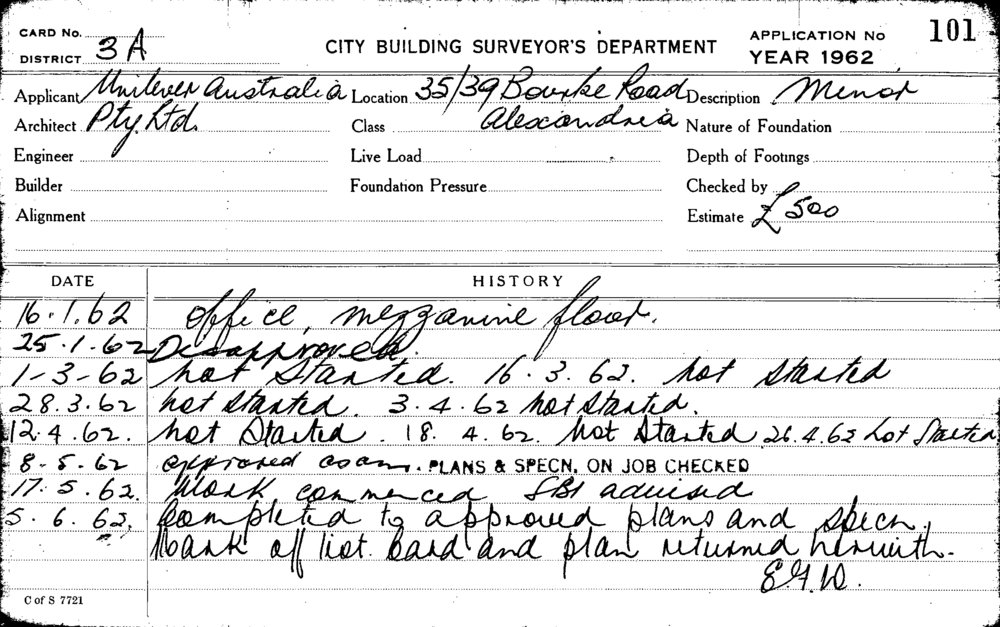 CARD No.
DISTRICT 3A
CITY BUILDING SURVEYOR'S DEPARTMENT
APPLICATION No 101
YEAR 1962
Applicant Unilever Australia Location 35/39 Bourke Road Description Minor
Architect Pty. Ltd. Class Alexandria Nature of Foundation
Engineer Live Load Depth of Footings
Builder Foundation Pressure Checked by
Alignment Estimate £500
DATE HISTORY
16.1.62 Office, mezzanine floor.
25.1.62 Disapproved.
1-3-62 Not Started. 16.3.62. Not Started
28.3.62 Not Started. 3.4.62 Not Started.
12.4.62. Not Started. 18.4.62. Not Started 26.4.62 Not Started
8-5.62 approved. PLANS & SPECN, ON JOB CHECKED
17.5.62. Work commenced advised
5.6.62. Completed to approved plans and specn.
Mark off list. Card and plan returned herewith.
C of S 7721